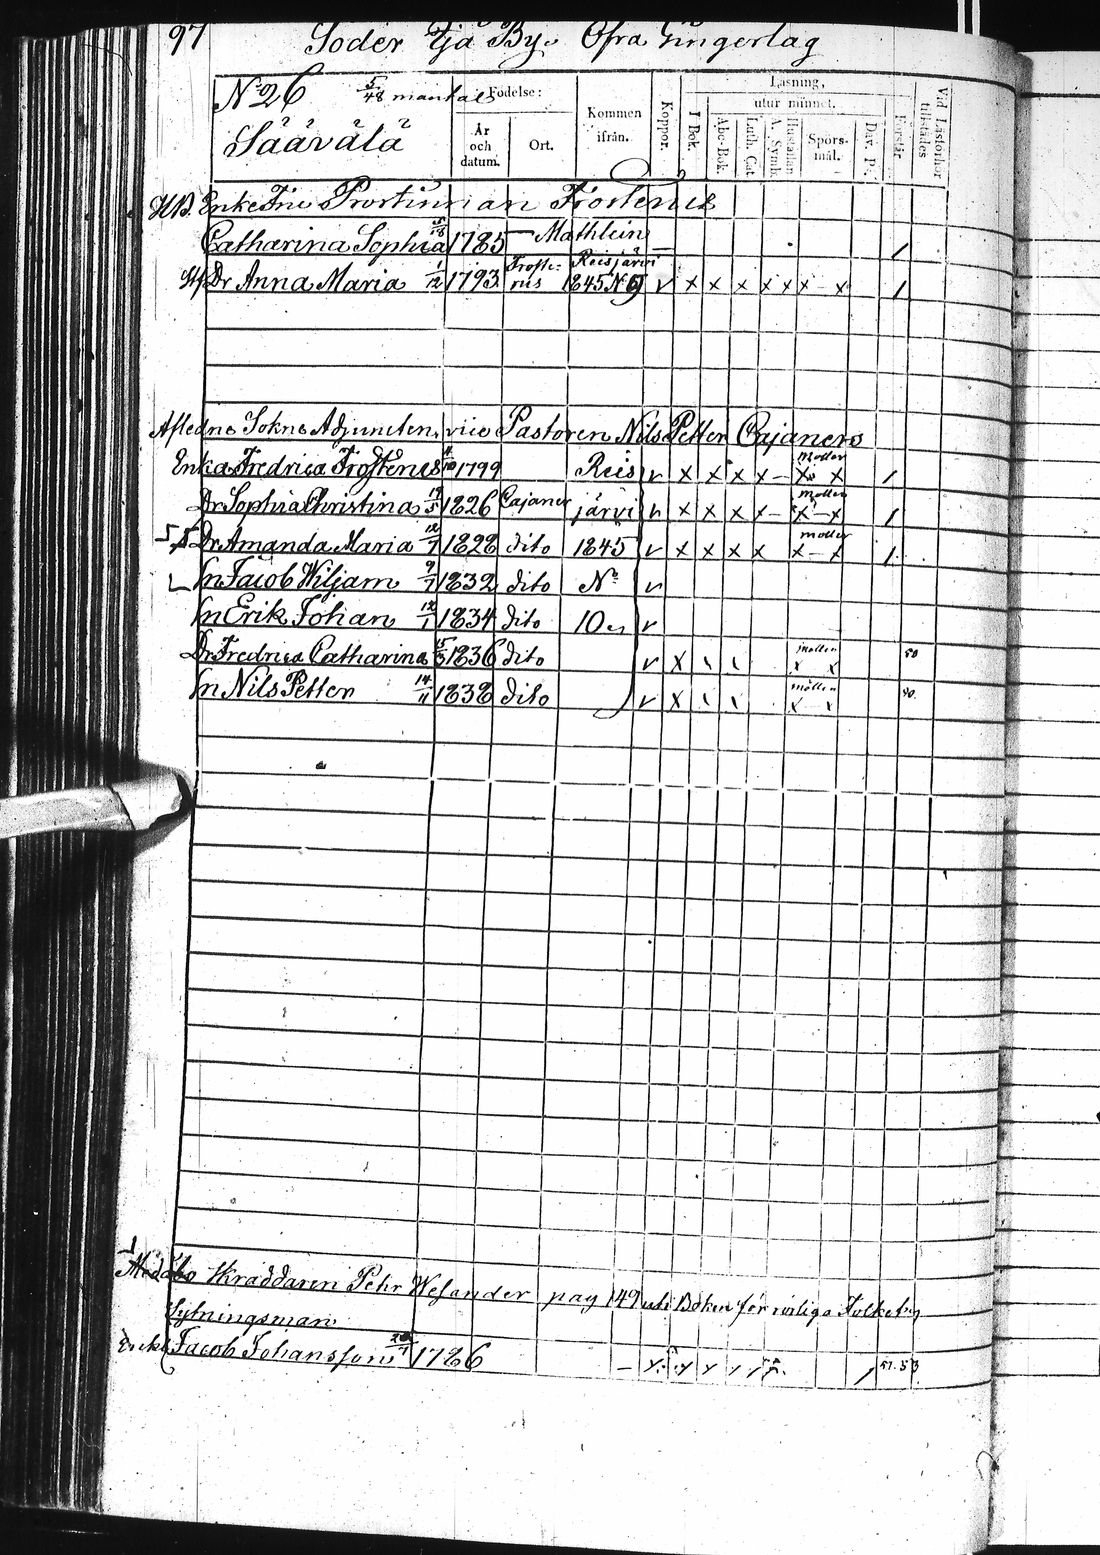 97 Söder Yja By. Öfra Fingerlag
No 26 5/48 mantal
Säävälä
Födelse:
År och datum.
Ort.
Kommen ifrån.
Koppor.
Läsning,
I Bok.
utur minnet.
Abc-Bok.
Luth. Cat.
A. Symb.
Hustaflan
Spörsmål.
Dav. P.
Förstår
Vid Läsförhör tillstädes
Enke Fru Prostinnan Frostenus
Catharina Sophia 5/18 1785 — Mathlein
Dr Anna Maria 1/12 1793 Froste-rus Reisjärvi 1845 N 9 v x x x x x x - x /
Afledne Sokne Adjuncten, vice Pastoren Nils Petter Cajaners
Enka Fredrica Frosterus 1799 Reis v x x x x - möller x x /
Dr Sophia Christina 19/5 1826 Cajaner järvi v x x x x - möller x - x /
Dr Amanda Maria 12/7 1828 dito 1845 v x x x x möller x - x /
Sn Jacob Wiljam 9/7 1832 dito No v
Sn Erik Johan 12/1 1834 dito 10 v
Dr Fredrica Catharina 15/3 1836 dito v x möller x x 50
Sn Nils Petter 14/11 1838 dito v x möller x - x 50.
Skräddaren Pehr Wesander pag 149 uti Boken för
Sytningsman
Enkl Jacob Johansson 1786 / 51.53